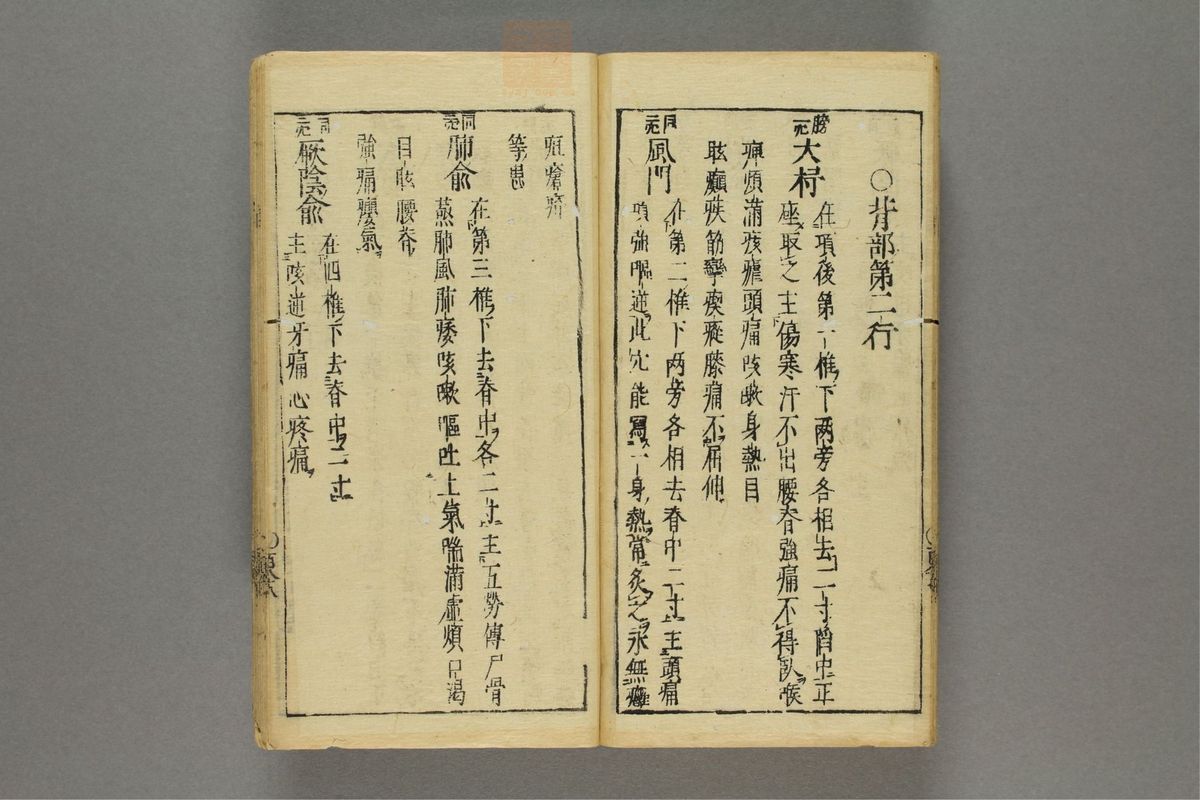 ○背部第二行
膀
元
大杼
在項後第一椎下两旁各相去二寸陷中正
座取之主傷寒汗不出腰脊強痛不得臥喉
痺煩滿痎瘧頭痛咳嗽身熱目
眩癲疾筋攣瘈瘲膝痛不屈伸
同
元
風門
在第二椎下两旁各相去脊中二寸主頭痛
項強嘔逆此穴能寫一身熱常灸之永無癰
疽瘡疥
等患
同
元
肺俞
在第三椎下去脊中各二寸主五勞傳尸骨
蒸肺風肺痿咳嗽嘔吐上氣喘滿虛煩口渴
目眩腰脊
強痛癭氣
同
元
厥陰俞
在四椎下去脊中二寸
主咳逆牙痛心疼痛